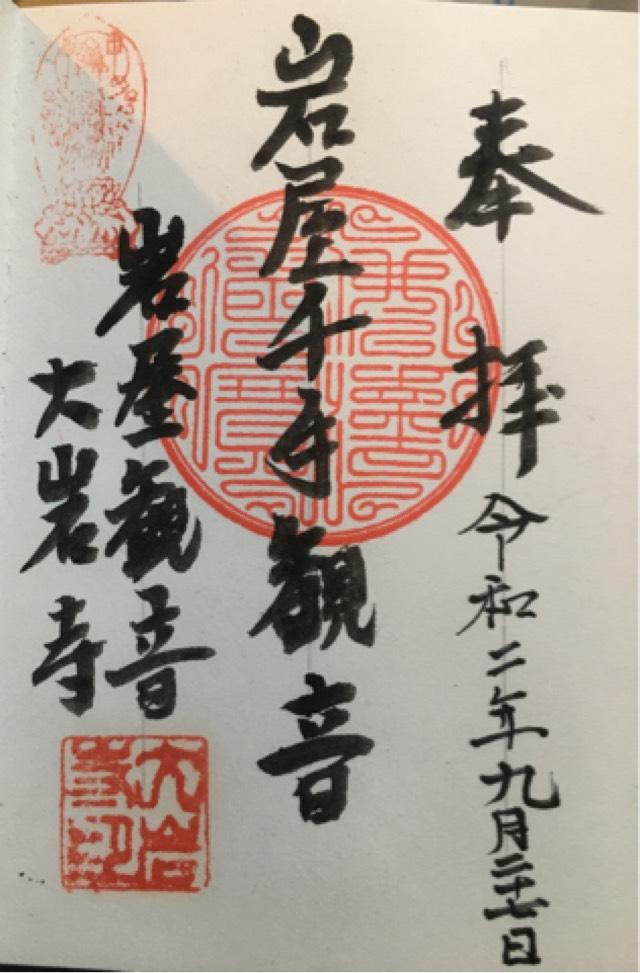 奉拝
令和二年九月二十七日
岩屋千手観音
岩屋観音
大岩寺
大岩寺印